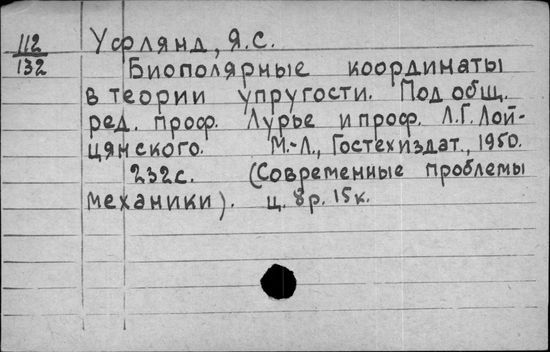 112 Уфлянд, Я.С.
132 Биополярные координаты
в теории упругости. Под общ.
ред. проф. Лурье и проф. Л.Г. Лой-
цянского. М.-Л., Гостехиздат., 1950.
232с. (Современные проблемы
механики). ц. 8р. 15к.